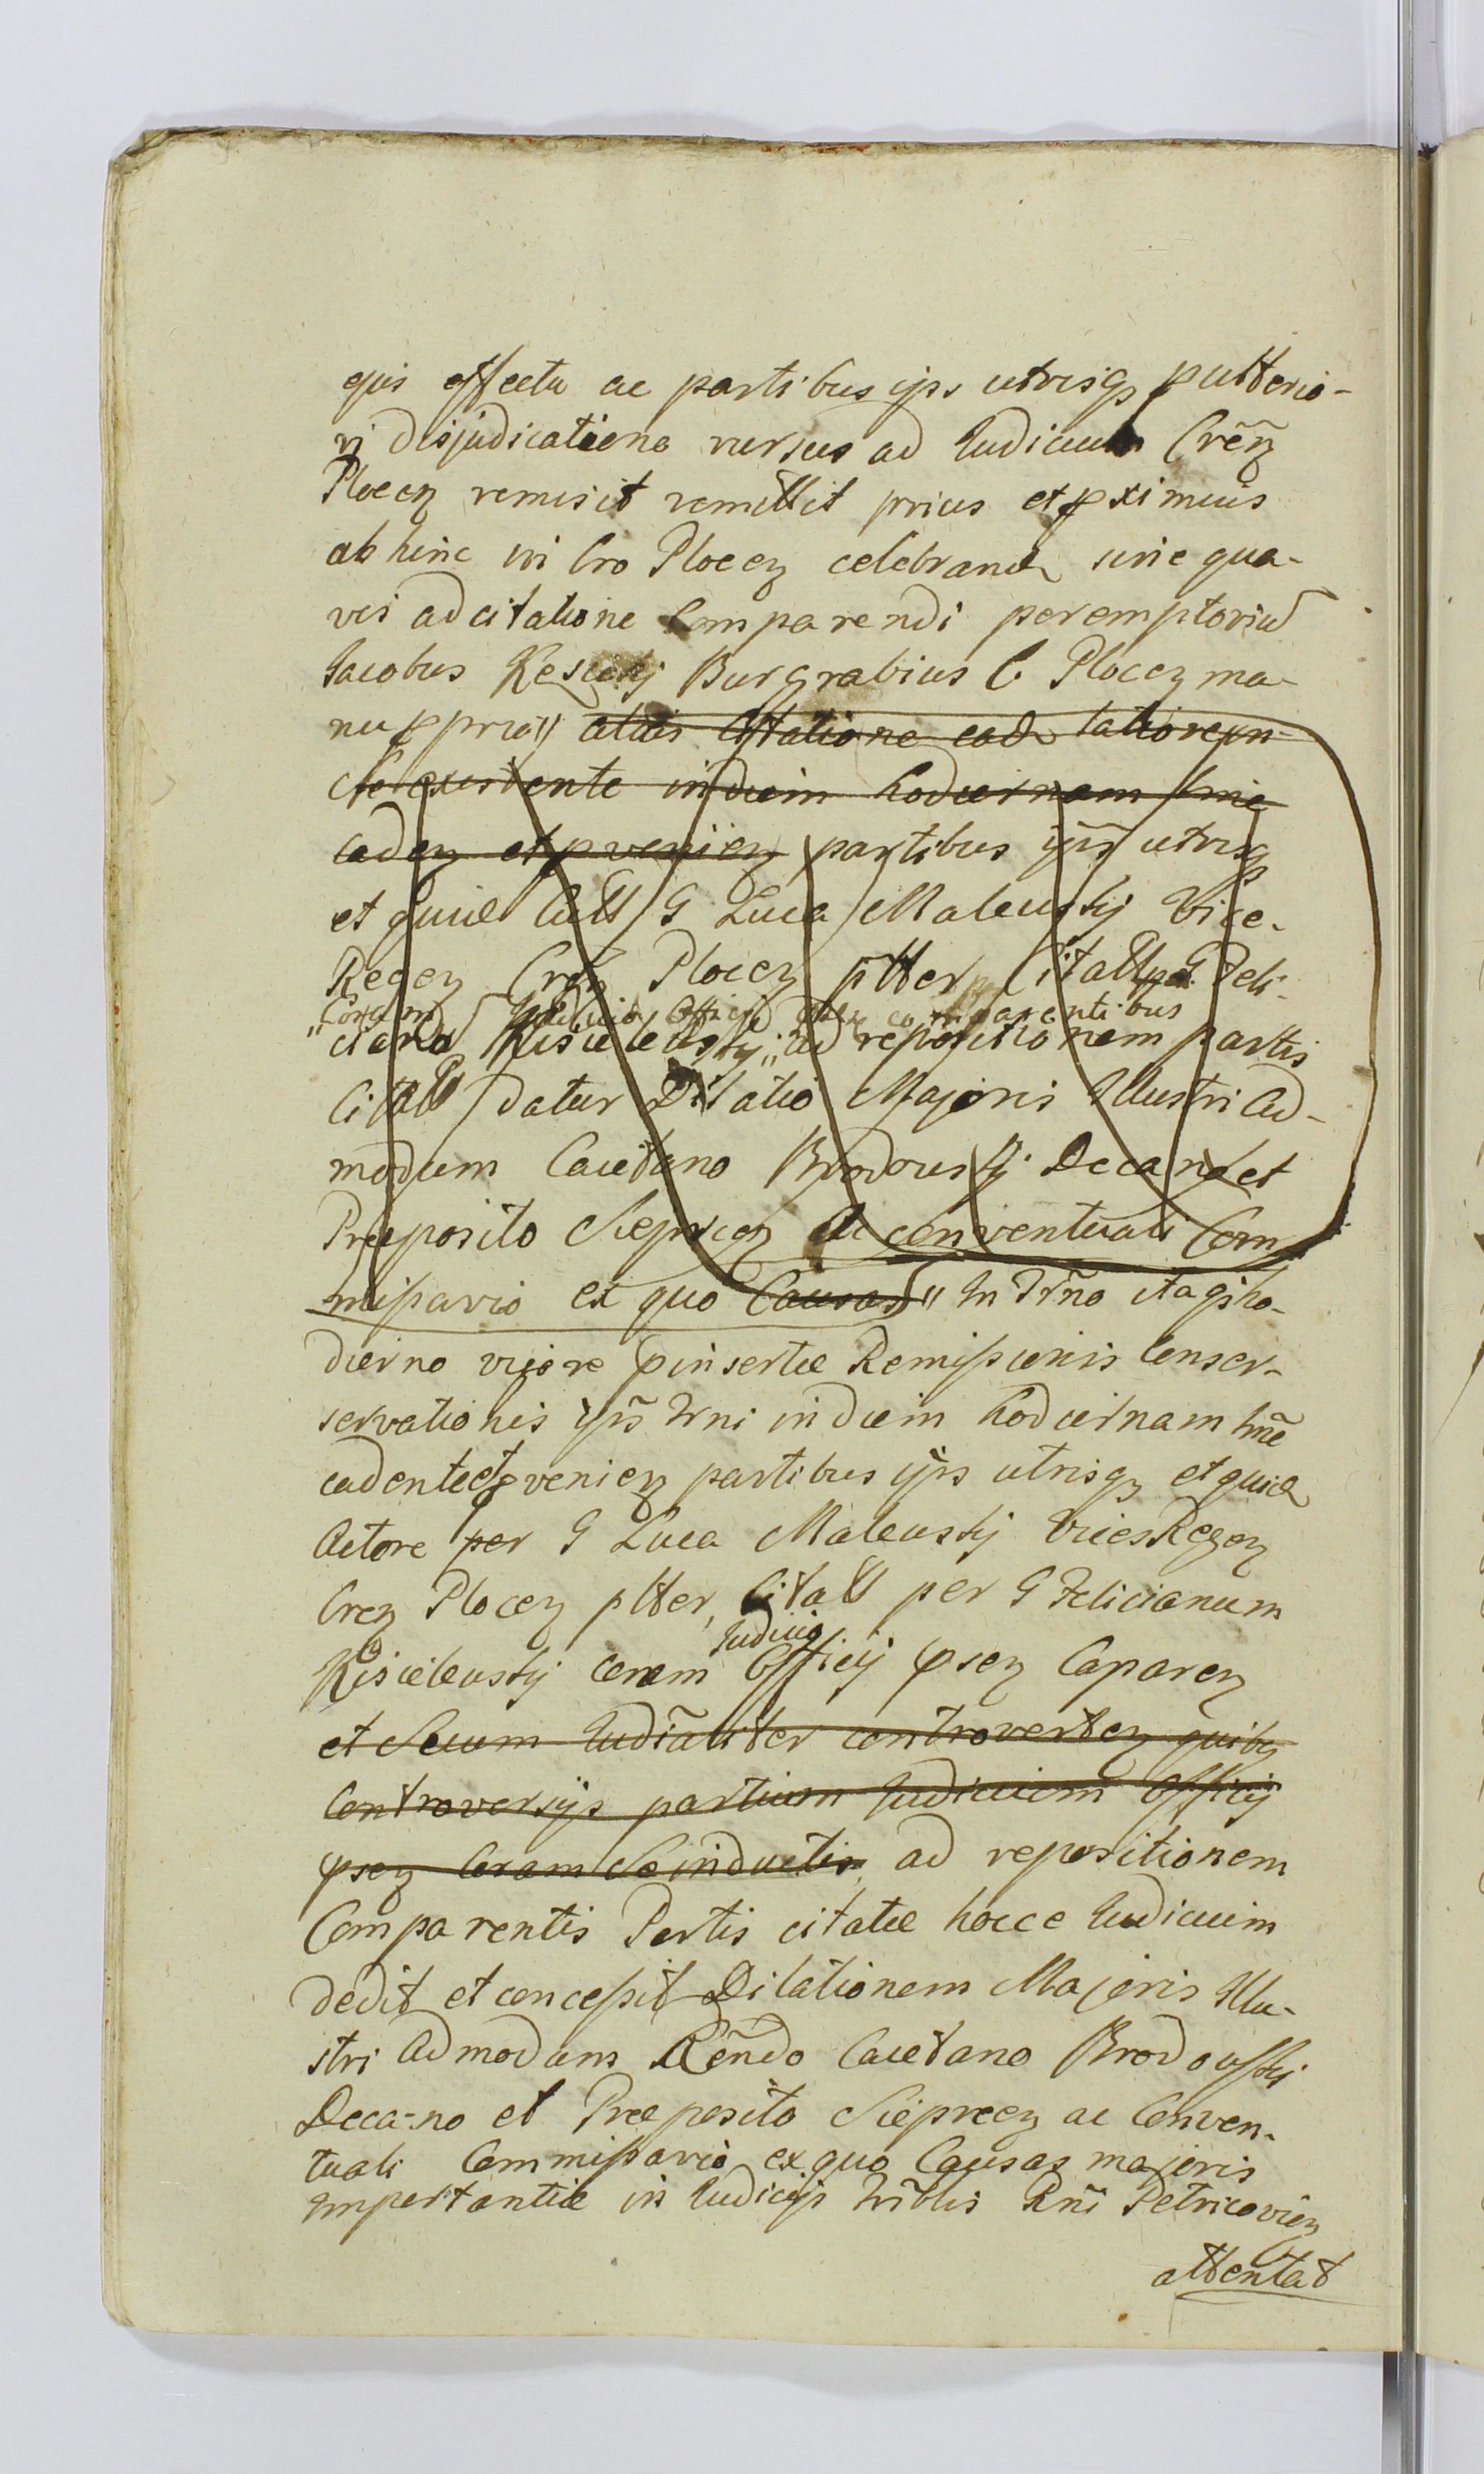 ejus effectu ac partibus ijs utrisq pultterio-
ri disjudicatione rursus ad Iudicium Crẽn
Plocen remisit remittit prius et pximius
ab hinc in Cro Plocen celebrand sine qua-
vis adcitatione Comparendi peremptoriu
Iacobus Burgrabius C. Plocen ma-
nu ppria" Citatione ead
existente in diem hodiernam hnc
caden et pvenien partibus ijs utrisq
et quid Citt G Luca Maleuskj Vice-
Regen Cren Plocen ptter Citatt p G Feli-
Coram Iudicio Officij comparentibus
"ciana Kisieleuskj" ad repositionem partis
Citatt datur Dilatio Majoris Illustri Ad-
modum Caietano Brodouskj Decano et
Præposito Sieprcen ac conventuali Com-
missario ex quo Causas" In Trño itaq ho-
dierno vigore pinsertæ Remissionis Conser-
servationis ijs Trni in diem hodiernam hnc
cadente et pvenien partibus ijs utrisq et quid
Actore per G Luca Maleuskj Vices Regen
Cren Plocen ptter, Citatt per G Felicianum
Iudicio
Kisieleuskj coram Officij psen Comparen
et Secum Iudialiter controverten quibq
Controversijs partium Iudicium Officij
psen Coram Se inductis, ad repositionem
Comparentis Partis citatæ hocce Iudicium
dedit et concessit Dilationem Majoris Illu-
stri Admodum Rẽndo Caietano Brodousky
Deca-no et Præposito Sieprcen ac Conven-
tuali Commissario ex quo Causas majoris
Importantiæ in Iudicijs Triblis Rñi Petricovien
attentat